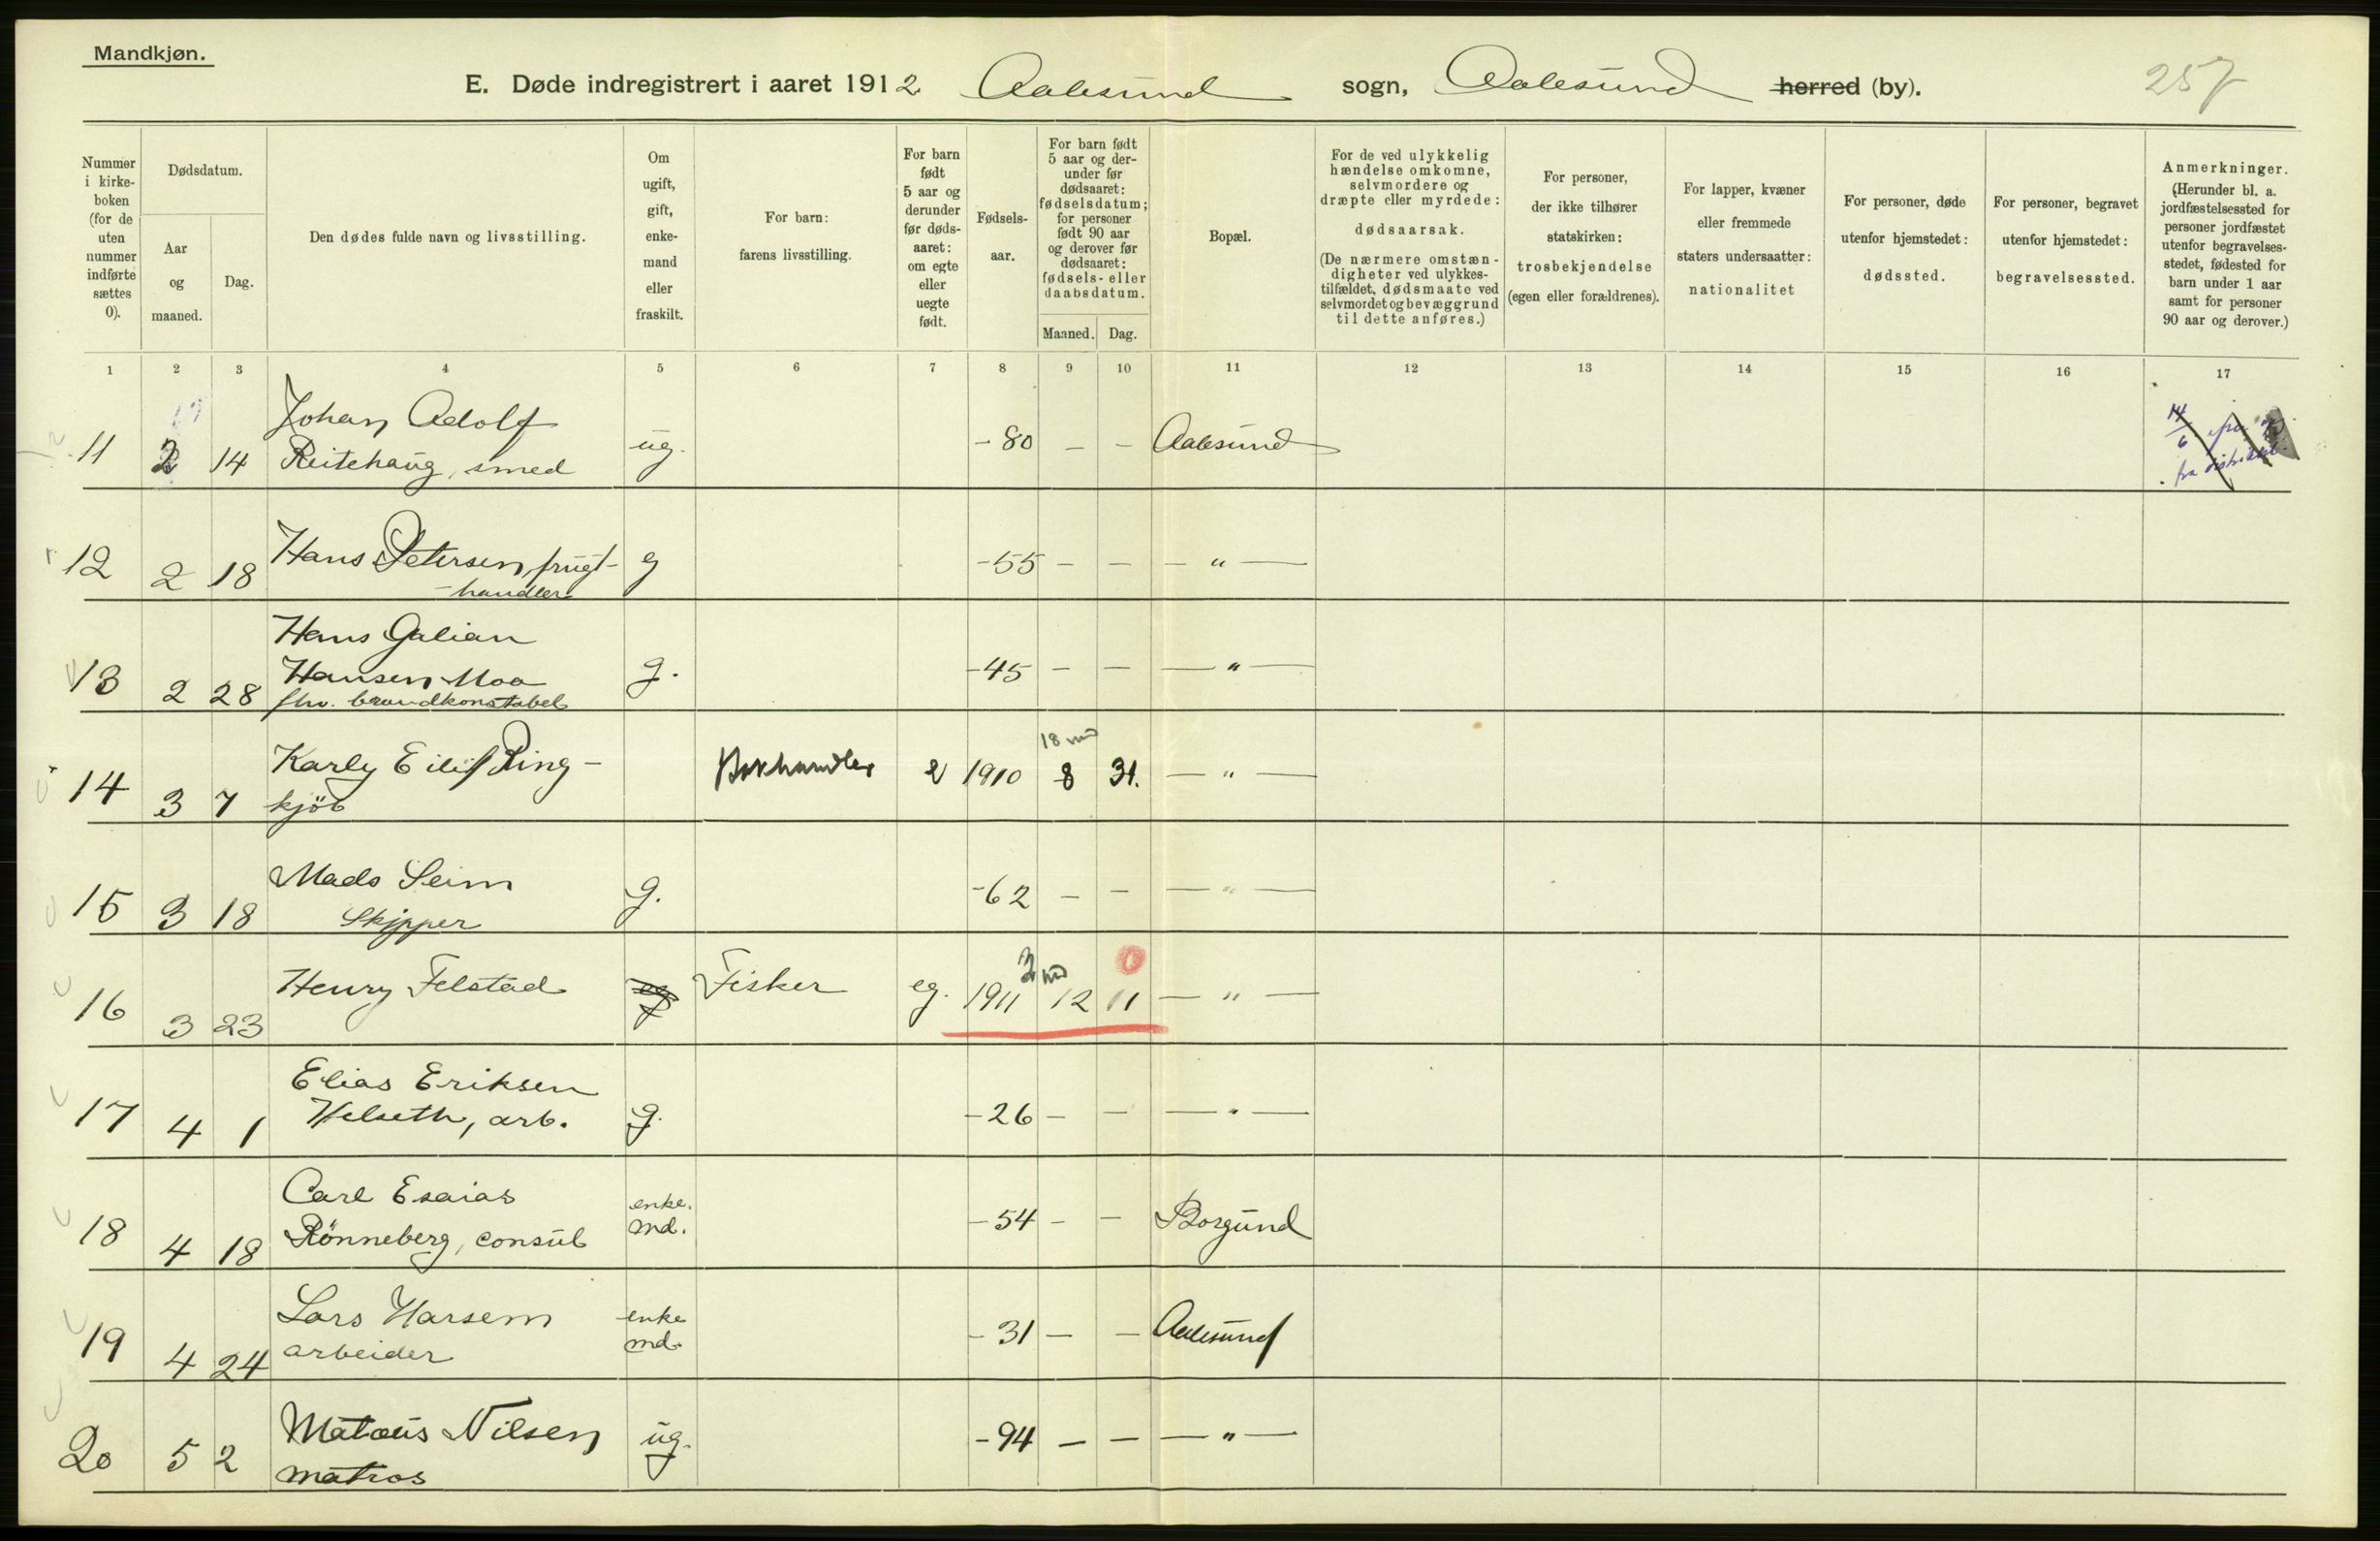 Mandkjøn.
E. Døde indregistrert i aaret 1912 Aalesund sogn, Aalesund herred (by). 257
Nummer i kirke-boken (for de uten nummer indførte sættes 0).
Dødsdatum.
Aar og maaned.
Dag.
Den dødes fulde navn og livsstilling.
Om ugift, gift, enke-mand eller fraskilt.
For barn: farens livsstilling.
For barn født 5 aar og derunder før døds-aaret: om egte eller uegte født.
Fødsels-aar.
For barn født 5 aar og der-under før dødsaaret: fødselsdatum; for personer født 90 aar og derover før dødsaaret: fødsels- eller daabsdatum.
Maaned. Dag.
Bopæl.
For de ved ulykkelig hændelse omkomne, selvmordere og dræpte eller myrdede: dødsaarsak. (De nærmere omstæn-digheter ved ulykkes-tilfældet, dødsmaate ved selvmordet og bevæggrund til dette anføres.)
For personer, der ikke tilhører statskirken: trosbekjendelse (egen eller forældrenes).
For lapper, kvæner eller fremmede staters undersaatter: nationalitet
For personer, døde utenfor hjemstedet: dødssted.
For personer, begravet utenfor hjemstedet: begravelsessted.
Anmerkninger. (Herunder bl. a. jordfæstelsessted for personer jordfæstet utenfor begravelses-stedet, fødested for barn under 1 aar samt for personer 90 aar og derover.)
1 2 3 4 5 6 7 8 9 10 11 12 13 14 15 16 17
11 2 14 Johan Adolf Reitehaug, smed ug. -80 - - Aalesund 14/6 fra fra distriktet
12 2 18 Hans Petersen, frugt-handler g -55 - - — " —
13 2 28 Hans Galian Hansen Moa fhv. brandkonstabel g. -45 - - — " —
14 3 7 Karly Eilif Ring-kjöb Bokhandler e 1910 18 md 8 31. — " —
15 3 18 Mads Seim Skipper g. -62 - - — " —
16 3 23 Henry Felstad eg Fisker eg. 1911 3 md 12 11 0 — " —
17 4 1 Elias Eriksen Helseth, arb. g. -26 - - — " —
18 4 18 Carl Esaias Rönneberg, consul enke.md. -54 - - Borgund
19 4 24 Lars Harsem arbeider enke md. -31 - - Aalesund
20 5 2 Matæus Nilsen matros ug. -94 - - — " —